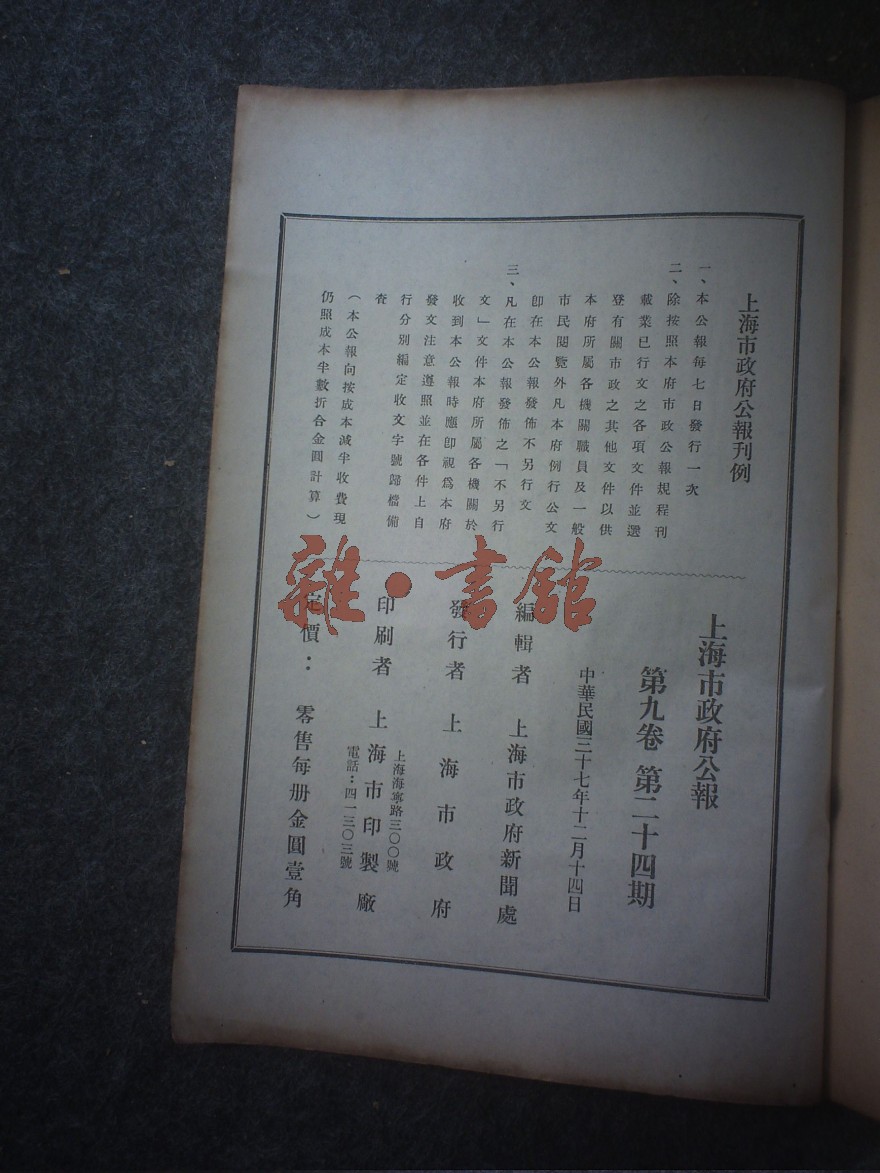 上海市政府公報刊例
一、本公報每七日發行一次
二、除按照本府市政公報規程刊
載業已行文之各項文件並選
登有關市政之其他文件以供
本府所屬各機關職員及一般
市民閱覽外凡本府例行公文
卽在本公報發佈不另行文
三、凡在本公報發佈之「不另行
文」文件本府所屬各機關於
收到本公報時應卽視爲本府
發文注意遵照並在各件上自
行分別編定收文字號歸檔備
查
(本公報向按成本減半收費現
仍照成本半數折合金圓計算)
上海市政府公報
第九卷 第二十四期
中華民國三十七年十二月十四日
編輯者 上海市政府新聞處
發行者 上海市政府
印刷者 上海市印製廠
上海海寧路三〇〇號
電話：四一三〇三號
定價： 零售每册金圓壹角
雜·書館